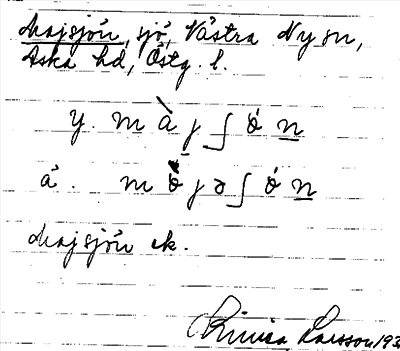 Majsjön, sjö, Västra Ny sn,
Aska hd, Östg. l.
y. m à j ʃ ö n
ä. m ö j ə ʃ ö n
Majsjön ek.
Larsson 193